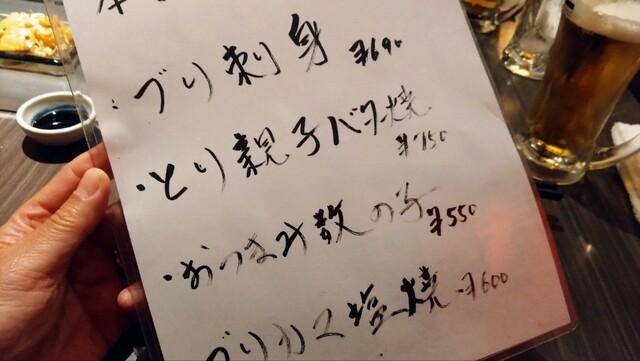 ・ブリ刺身 ¥690
・とり親子バタ焼 ¥750
・おつまみ数の子 ¥550
ブリカマ塩焼 ¥600